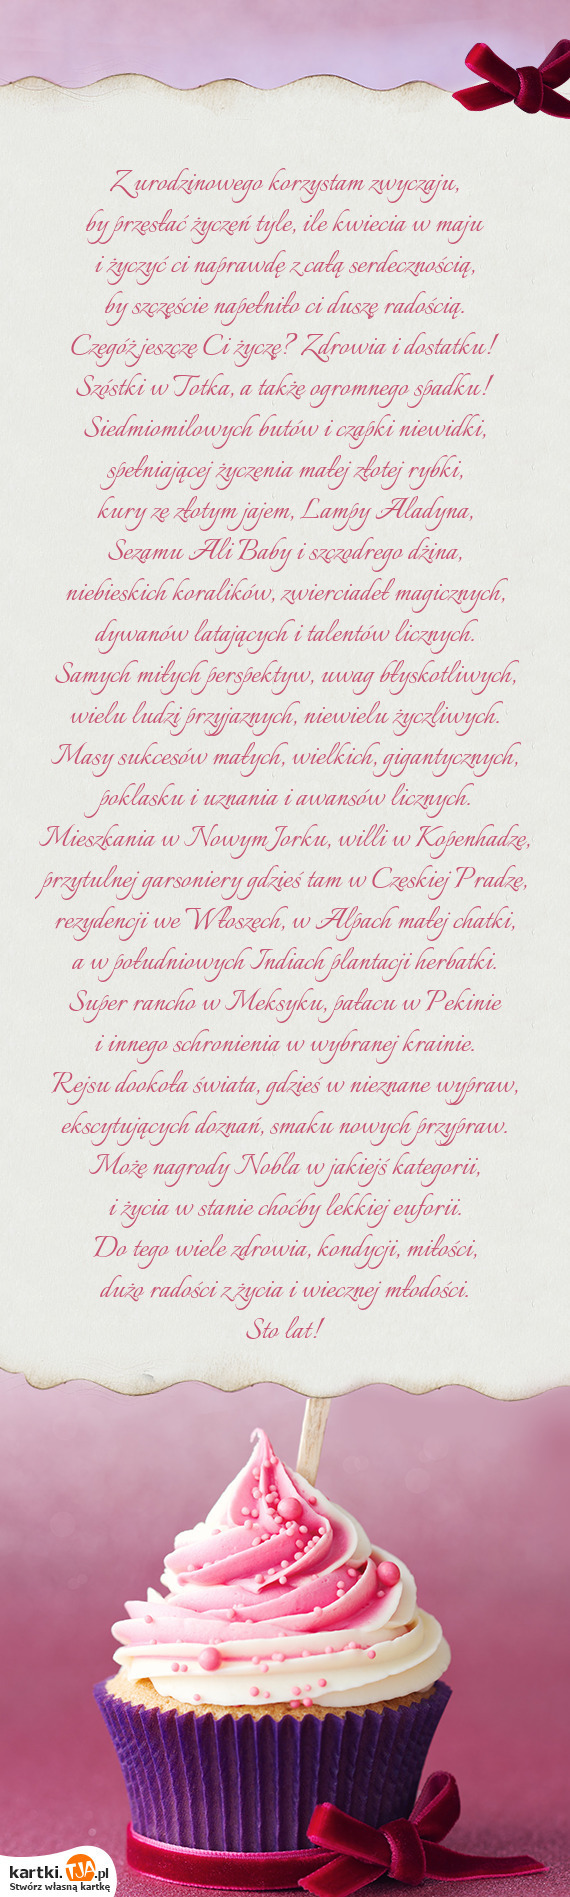 Z urodzinowego korzystam zwyczaju,
by przesłać życzeń tyle, ile kwiecia w maju
i życzyć ci naprawdę z całą serdecznością,
by szczęście napełniło ci duszę radością.
Czegóż jeszcze Ci życzę? Zdrowia i dostatku!
Szóstki w Totka, a także ogromnego spadku!
Siedmiomilowych butów i czapki niewidki,
spełniającej życzenia małej złotej rybki,
kury ze złotym jajem, Lampy Aladyna,
Sezamu Ali Baby i szczodrego dżina,
niebieskich koralików, zwierciadeł magicznych,
dywanów latających i talentów licznych.
Samych miłych perspektyw, uwag błyskotliwych,
wielu ludzi przyjaznych, niewielu życzliwych.
Masy sukcesów małych, wielkich, gigantycznych,
poklasku i uznania i awansów licznych.
Mieszkania w Nowym Jorku, willi w Kopenhadze,
przytulnej garsoniery gdzieś tam w Czeskiej Pradze,
rezydencji we Włoszech, w Alpach małej chatki,
a w południowych Indiach plantacji herbatki.
Super rancho w Meksyku, pałacu w Pekinie
i innego schronienia w wybranej krainie.
Rejsu dookoła świata, gdzieś w nieznane wypraw,
ekscytujących doznań, smaku nowych przypraw.
Może nagrody Nobla w jakiejś kategorii,
i życia w stanie choćby lekkiej euforii.
Do tego wiele zdrowia, kondycji, miłości,
dużo radości z życia i wiecznej młodości.
Sto lat!
kartki.TJA.pl
Stwórz własną kartkę